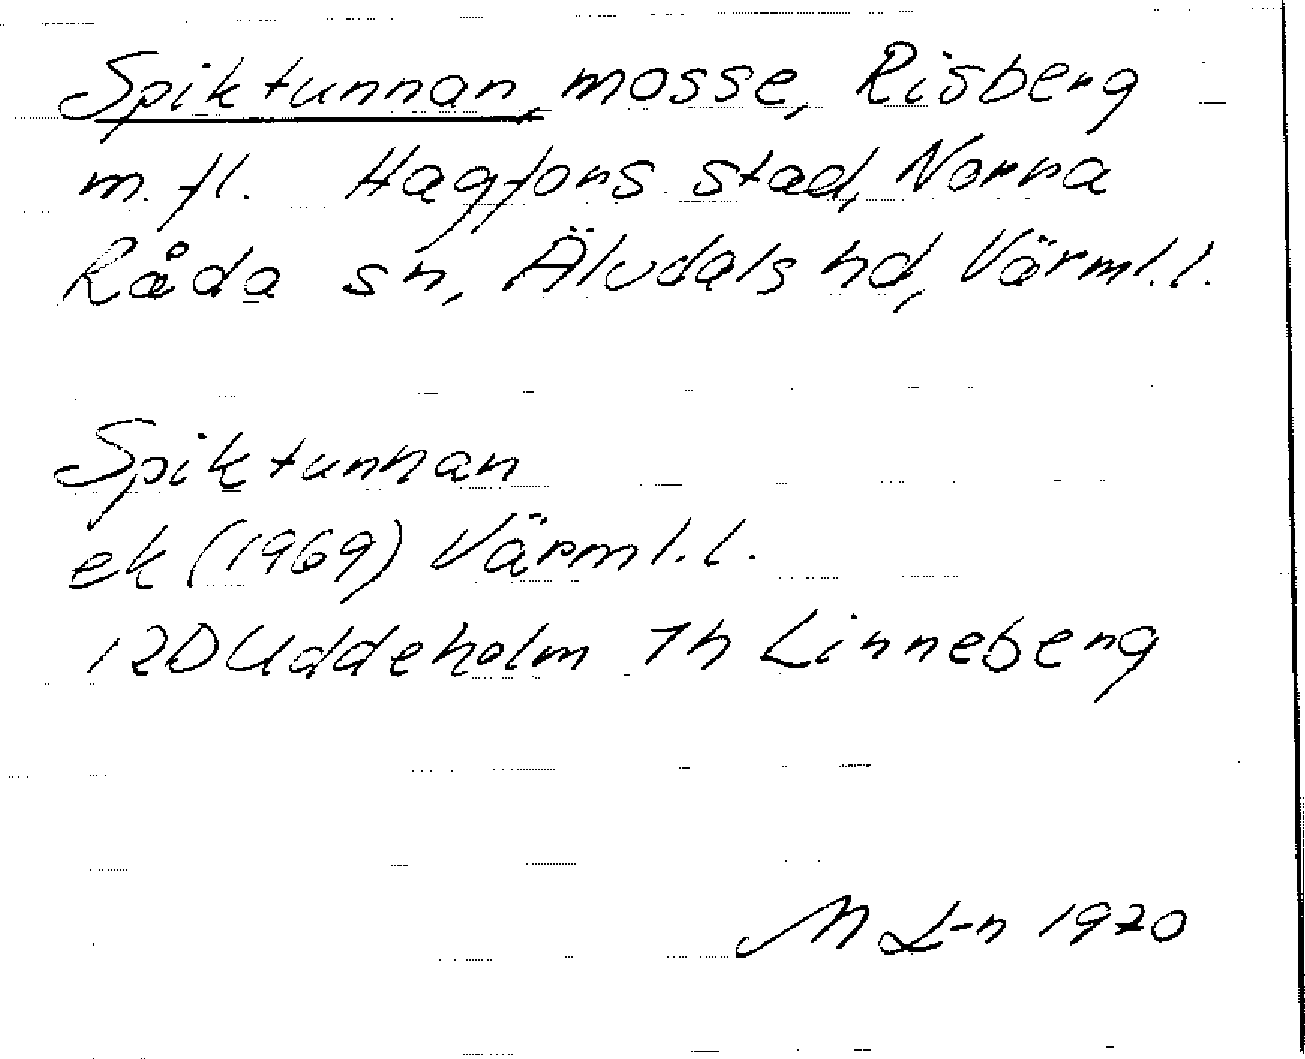 Spiktunnan, mosse, Risberg
m. fl. Hagfors stad, Norra
Råda sn, Älvdals hd, Värml. l.
Spiktunnan
ek (1969) Värml. l.
12D Uddeholm Th Linneberg
M L-n 1970